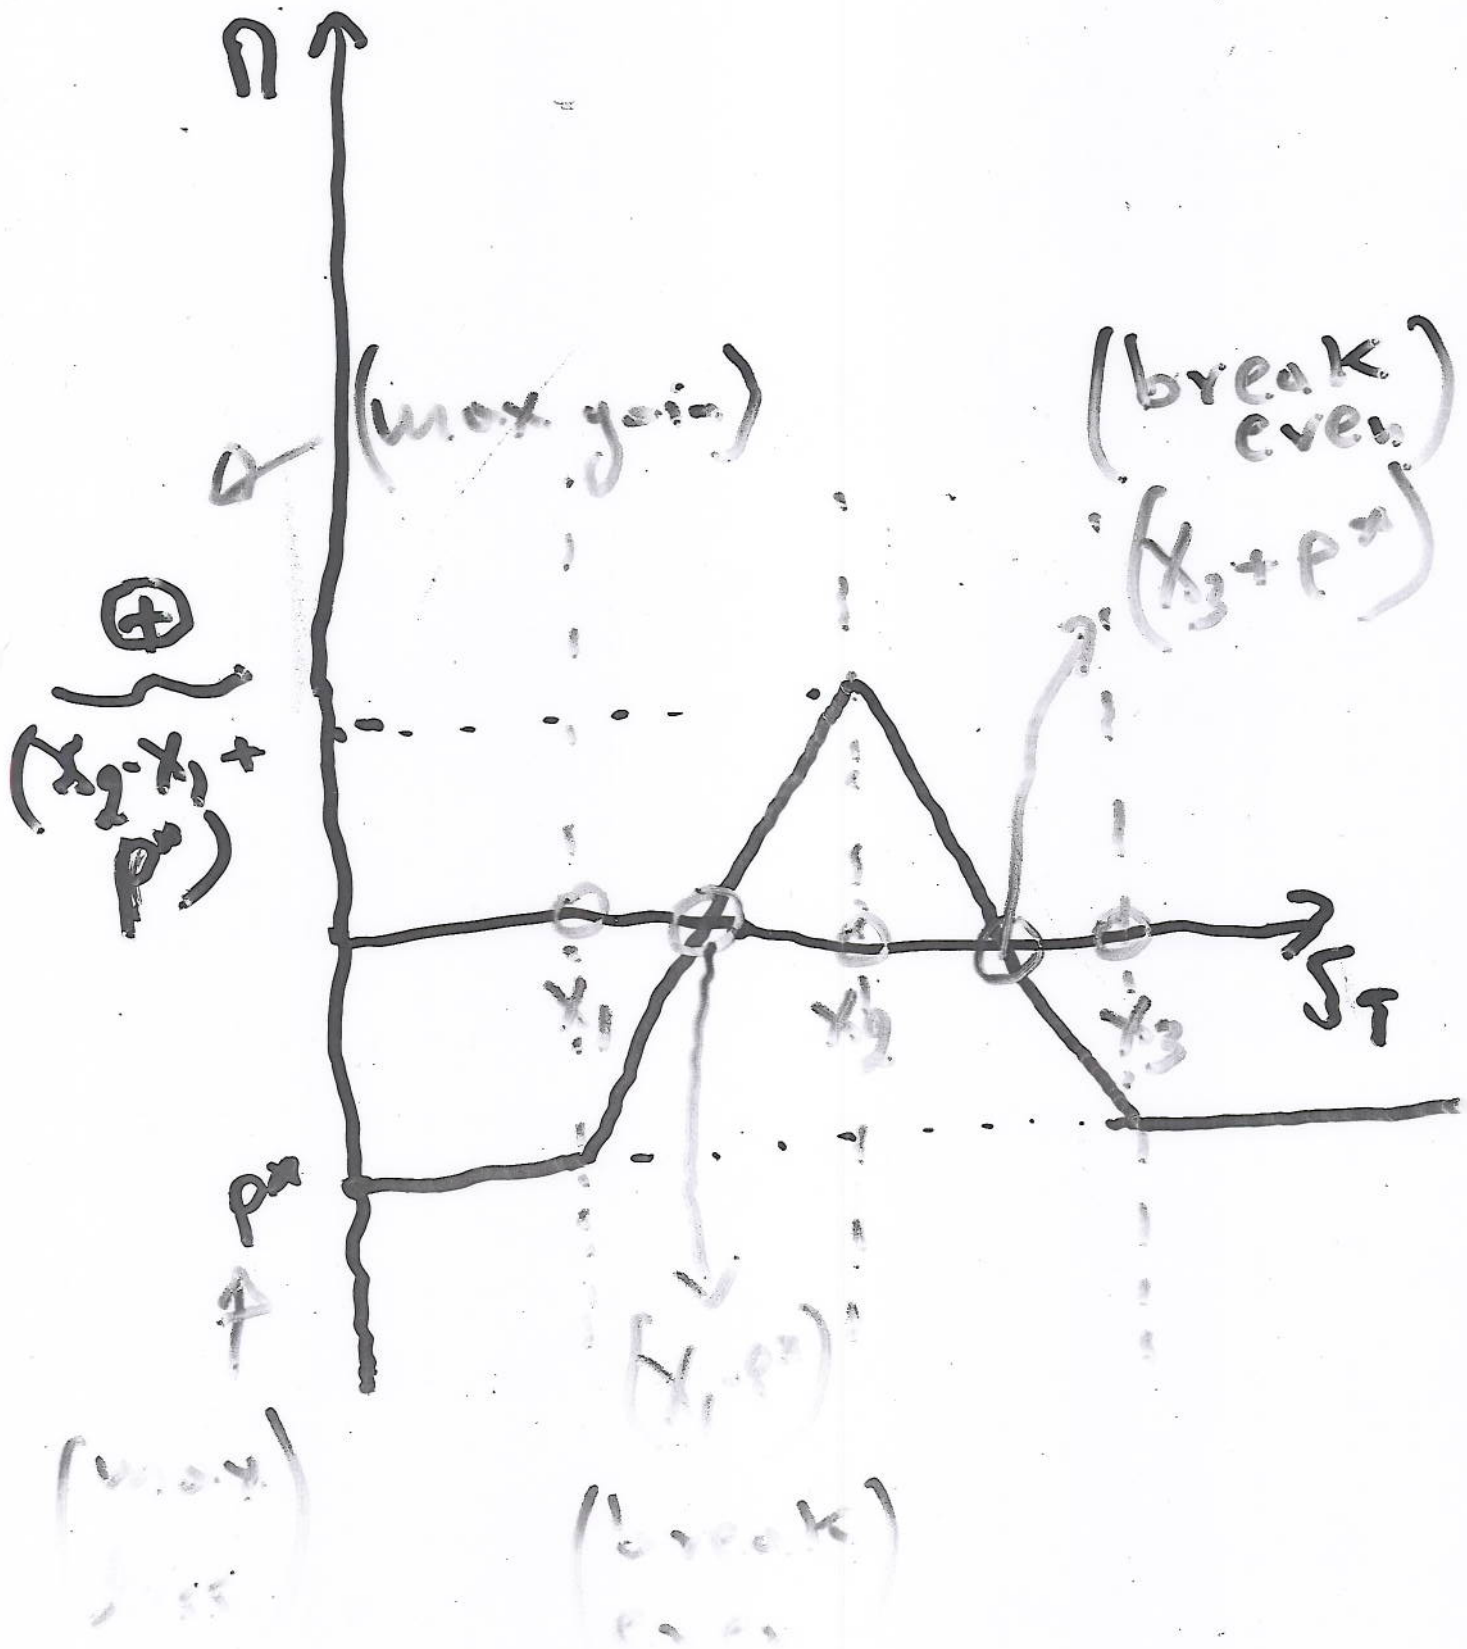 Π
(max gain)
(break
even)
(X₃ + P*)
⊕
(X₂ - X₁ +
P*)
X₁
X₂
X₃
S_T
P*
(X₁ - P*)
(max
loss)
(break
even)